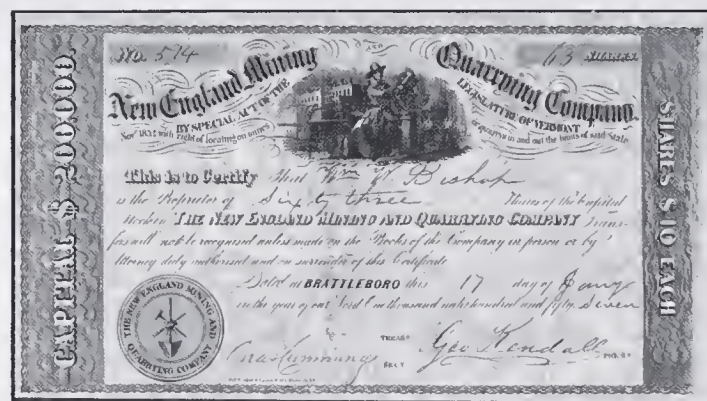 No. 574 AND 63 Shares
New England Mining Quarrying Company
BY SPECIAL ACT OF THE LEGISLATURE OF VERMONT
Novr. 1853 with right of locating on mines or quarries in and out the limits of said State
CAPITAL $200,000.
This is to Certify that Wm W. Bishop
is the Proprietor of Sixty three Shares of the Capital
Stock in THE NEW ENGLAND MINING AND QUARRYING COMPANY Trans-
fers will not be recognised unless made on the Books of the Company in person or by
Attorney duly authorised and on surrender of this Certificate
Dated at BRATTLEBORO this 17 day of Jany
in the year of our Lord one thousand eight hundred and fifty seven
THE NEW ENGLAND MINING AND QUARRYING COMPANY
TREAS. Geo Kendall PRES.
Cumming SECY
SHARES $10 EACH